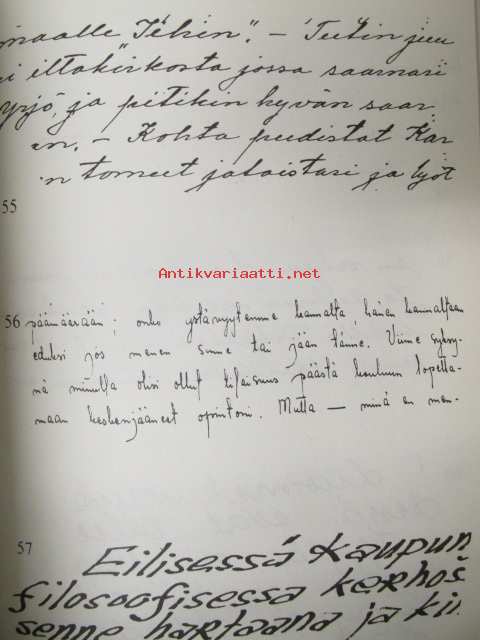 maalle Tekin". – Tulin juu
iltakirkosta jossa saarnasi
yrjö, ja pitikin hyvän saar
an. – Kohta pudistat Kar
n tomeet jaloistasi ja työt
55
Antikvariaatti.net
56 päämäärään; onko ystävyytemme kannalta, hänen kannaltaan
eduksi jos menen sinne tai jään tänne. Viime syksy-
nä minulla olisi ollut tilaisuus päästä kouluun lopetta-
maan keskenjääneet opintoni. Mutta — minä en men-
57
Eilisessä kaupun
filosoofisessa kerhos
senne hartaana ja kii